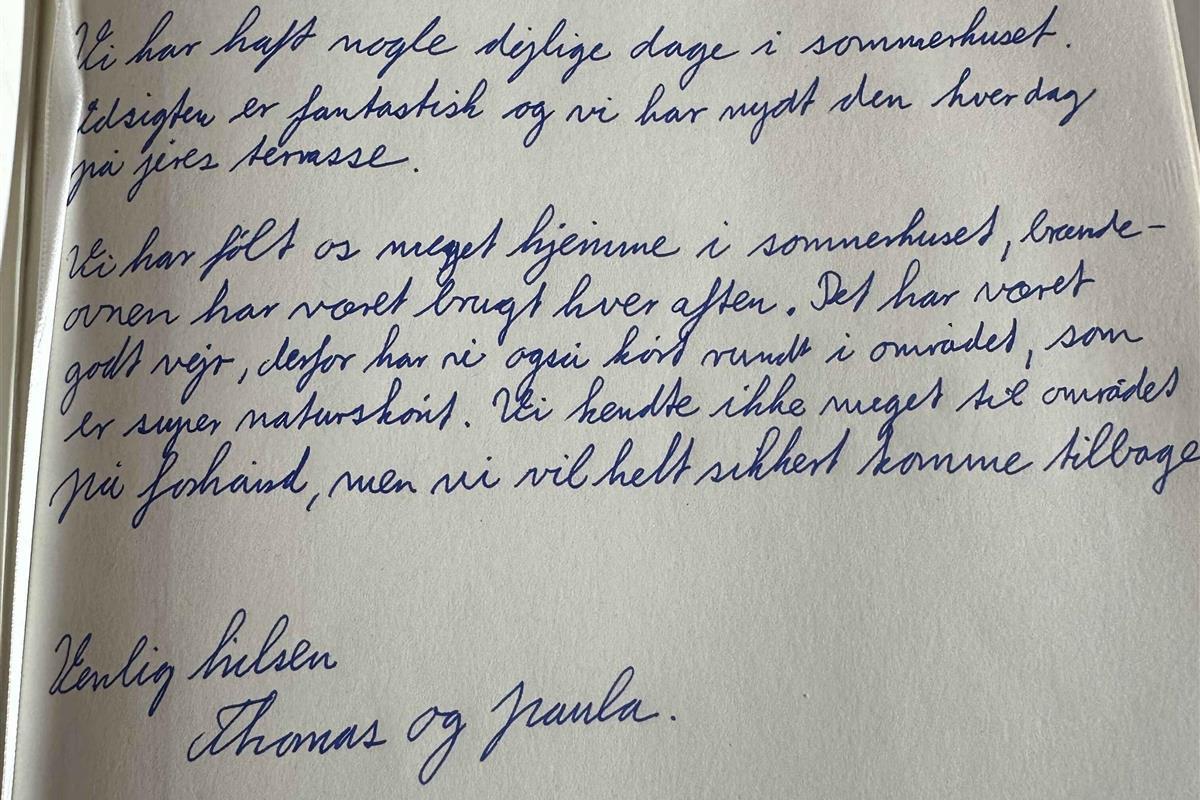 Vi har haft nogle dejlige dage i sommerhuset.
Udsigten er fantastisk og vi har nydt den hver dag
på jeres terrasse.
Vi har følt os meget hjemme i sommerhuset, brænde-
ovnen har været brugt hver aften. Det har været
godt vejr, derfor har vi også kørt rundt i området, som
er super naturskønt. Vi kendte ikke meget til området
på forhånd, men vi vil helt sikkert komme tilbage
Venlig hilsen
Thomas og Paula.